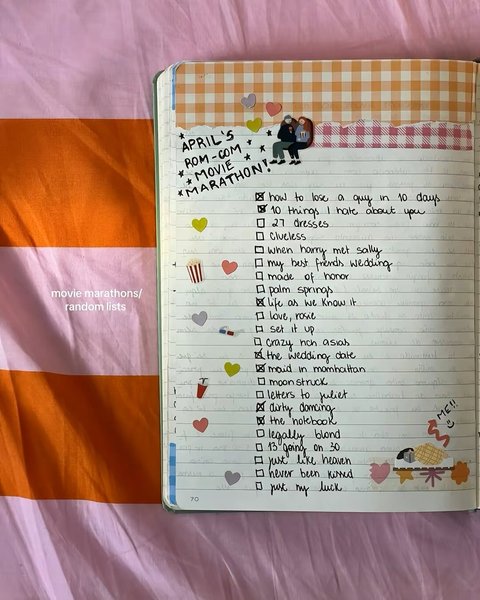 APRIL'S
ROM-COM
MOVIE
MARATHON!
how to lose a guy in 10 days
10 things I hate about you
27 dresses
clueless
when harry met sally
my best friends wedding
made of honor
palm springs
life as we know it
love, rosie
set it up
crazy rich asias
the wedding date
maid in manhattan
moonstruck
letters to juliet
dirty dancing
the notebook
legally blond
13 going on 30
just like heaven
never been kissed
just my luck
movie marathons/
random lists
ME!!
70